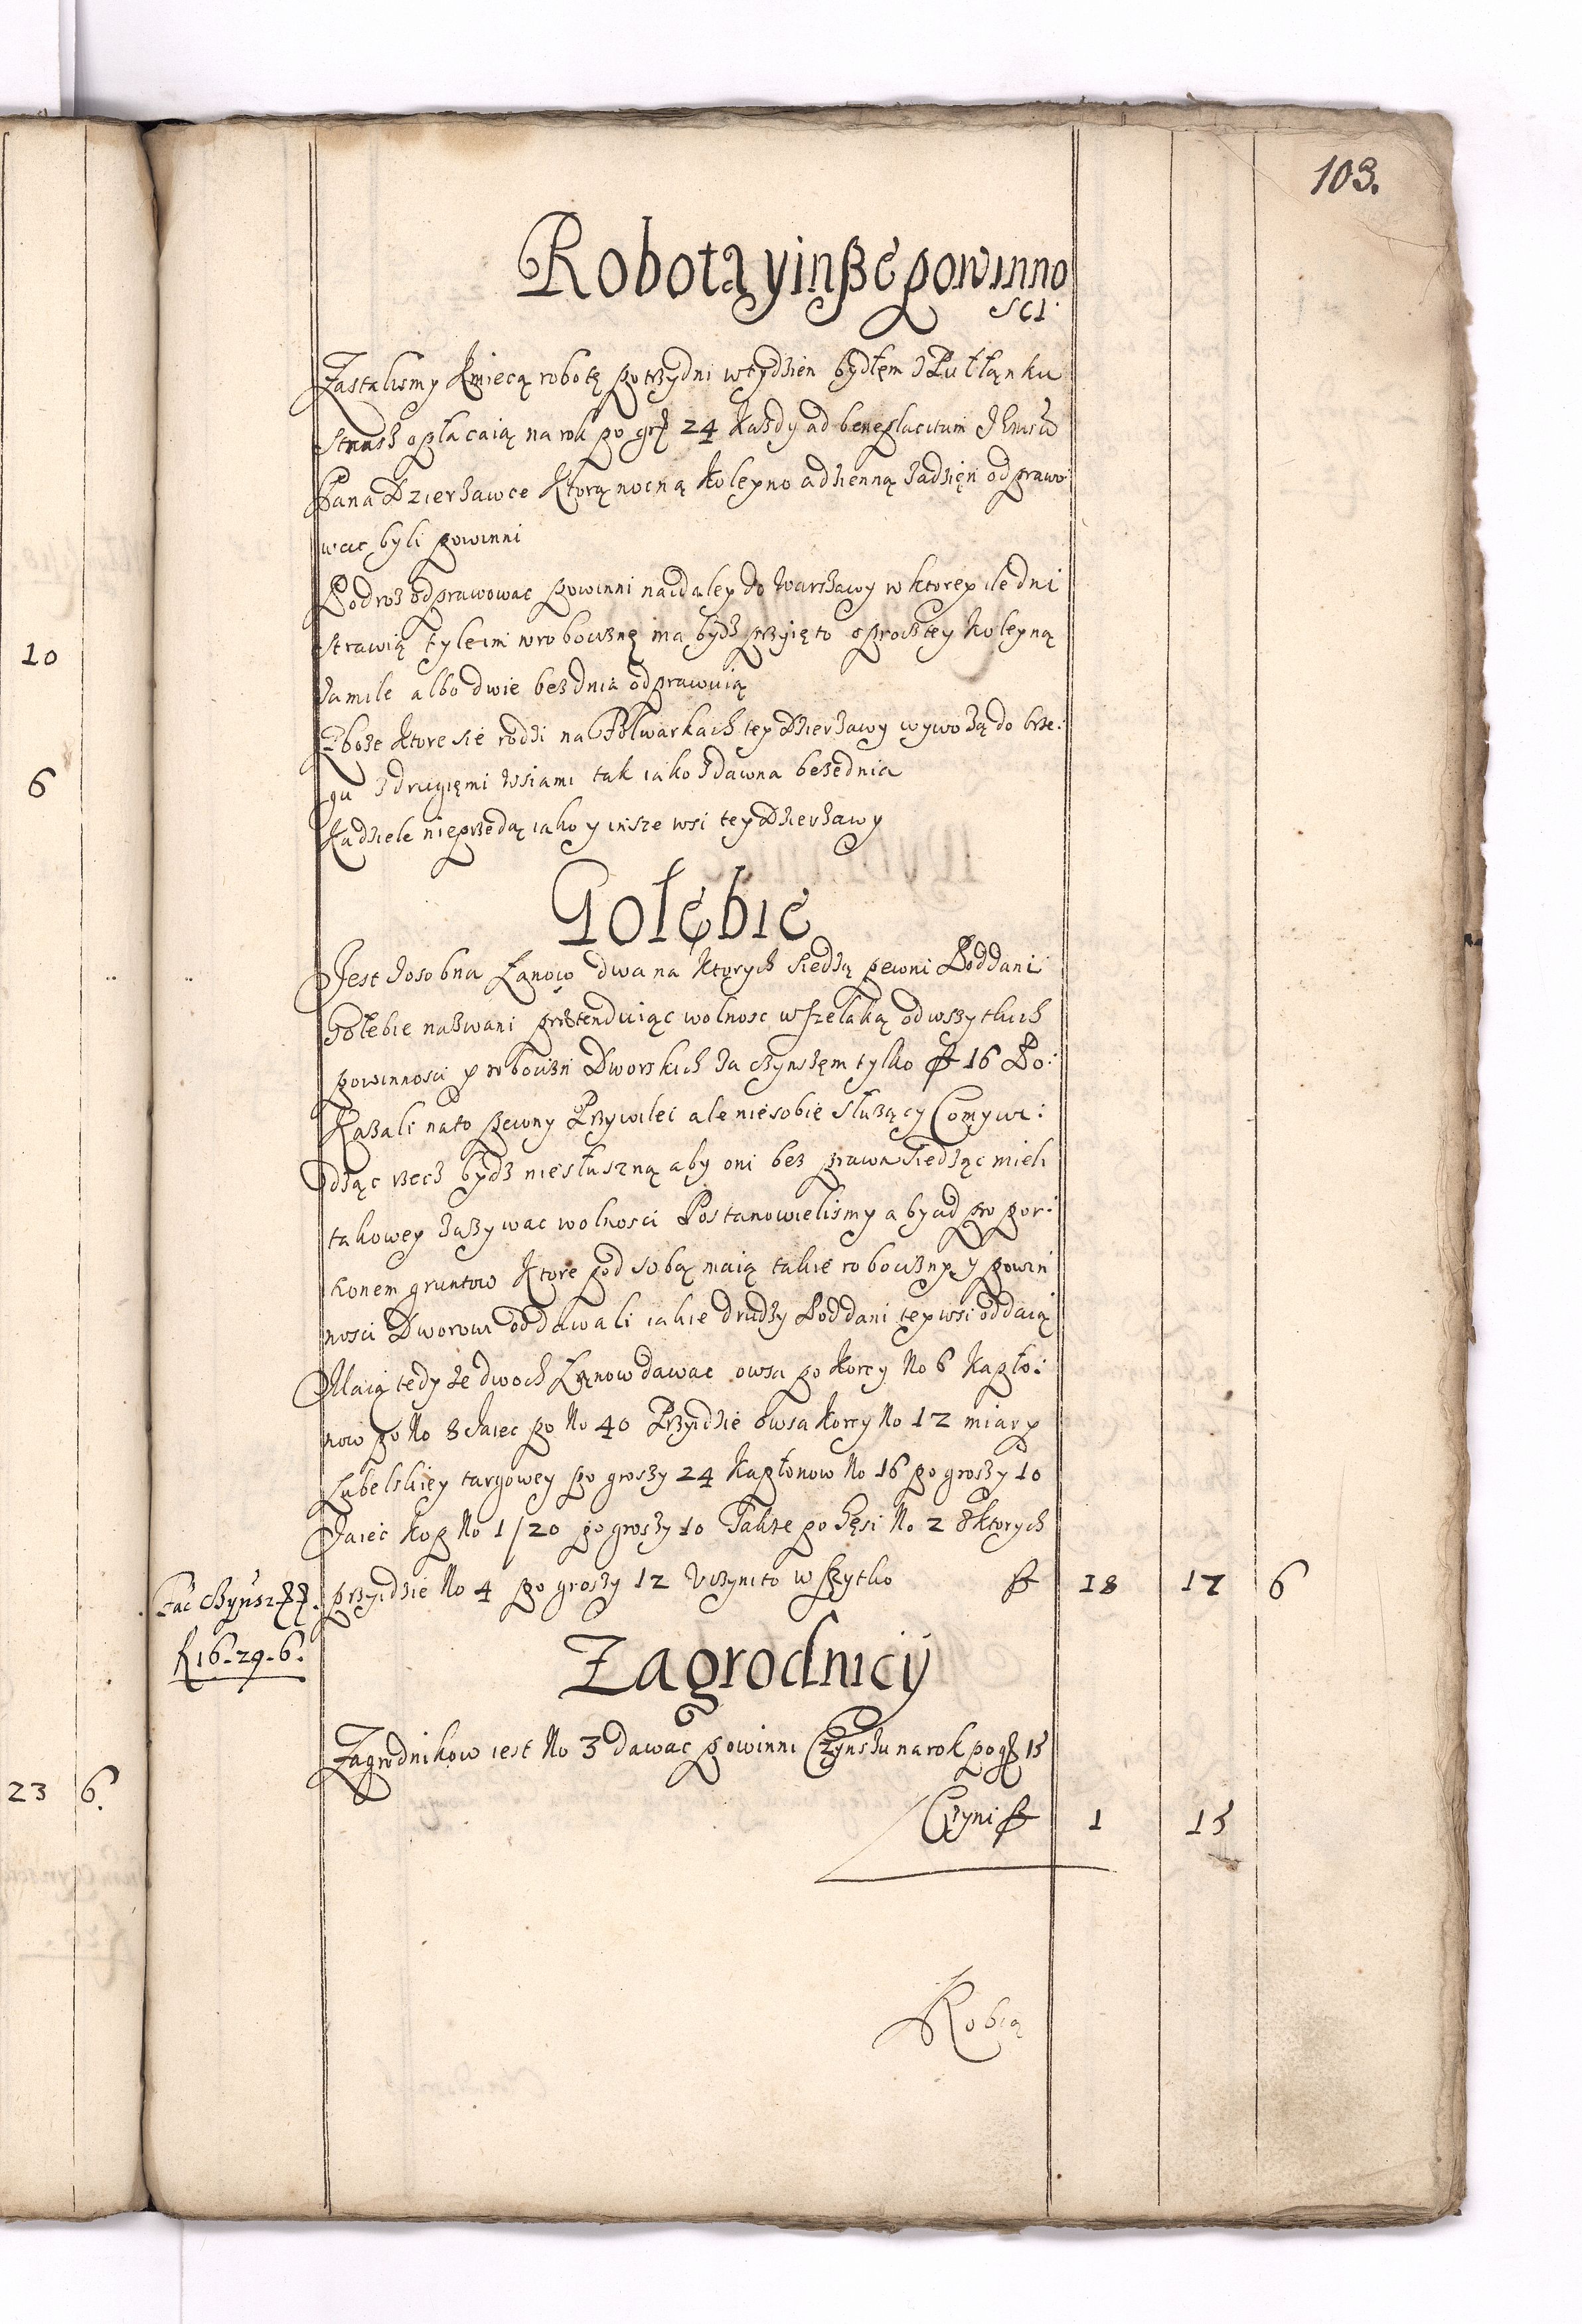 103.
Robotą y inße powinno
sci
Zastalismy Kmiecą robotę po trzy dni w tydzien bydłęm z Pułłąnku
Stroz opłacaią na rok po gr 24 Kazdy ad beneplacitum
Pana Dzierzawce Ktorą nocną Koleyno a dzienną zadzięn odprawo
wac byli powinni
Podroz odprawowac powinni naidaley do Warszawy w ktorey ile dni
strawią tyle im w robociznę ma bydz przyięto oprocz tey Koleyną
za mile albo dwie bez dnia odprawuią
Zboze Ktore sie rodzi na Folwarkach tey Dzierzawy wywozą do brze:
gu z drugięmi wsiami tak iako zdawna bezednia
Kądziele nieprzedą iako y insze wsi tey Dzierzawy
Gołębie
Jest zosobna Łanow dwa na Ktorych siedzą pewni Poddani
Gołebie nazwani prętenduiąc wolnosc wszelaką od wszytkich
powinnosci y robocizn Dworskich za czynszęm tylko f 16 Po:
Kazali na to pewny Przywilei ale nie sobie słuzący Co my wi:
dząc rzecz bydz niesłuszną aby oni bez prawa siedząc mieli
takowey zazywac wolnosci Postanowielismy aby ad propor:
tionem gruntow Ktore pod sobą maią takie robocizny y powin
nosci Dworowi oddawali iakie drudzy Poddani tey wsi oddaią
Maią tedy ze dwoch Łąnow dawac owsa po Korcy No 6 Kapło:
now po No 8 Jaiec po No 40 Przyidzie owsa Korcy No 12 miary
Lubelskiey targowey po groszy 24 Kapłonow No 16 po groszy 10
Jaiec Kop No 1/20 po groszy 10 Takze po Gęsi No 2 z Ktorych
przyidzie No 4 po groszy 12 Uczyni to wszytko f 18 17 6
f 16 - 29 - 6.
Zagrodnicy
Zagrodnikow iest No 3 dawac powinni Czynszu na rok po gr 15
Czyni f 1 15
Robią
10
6
23 6.